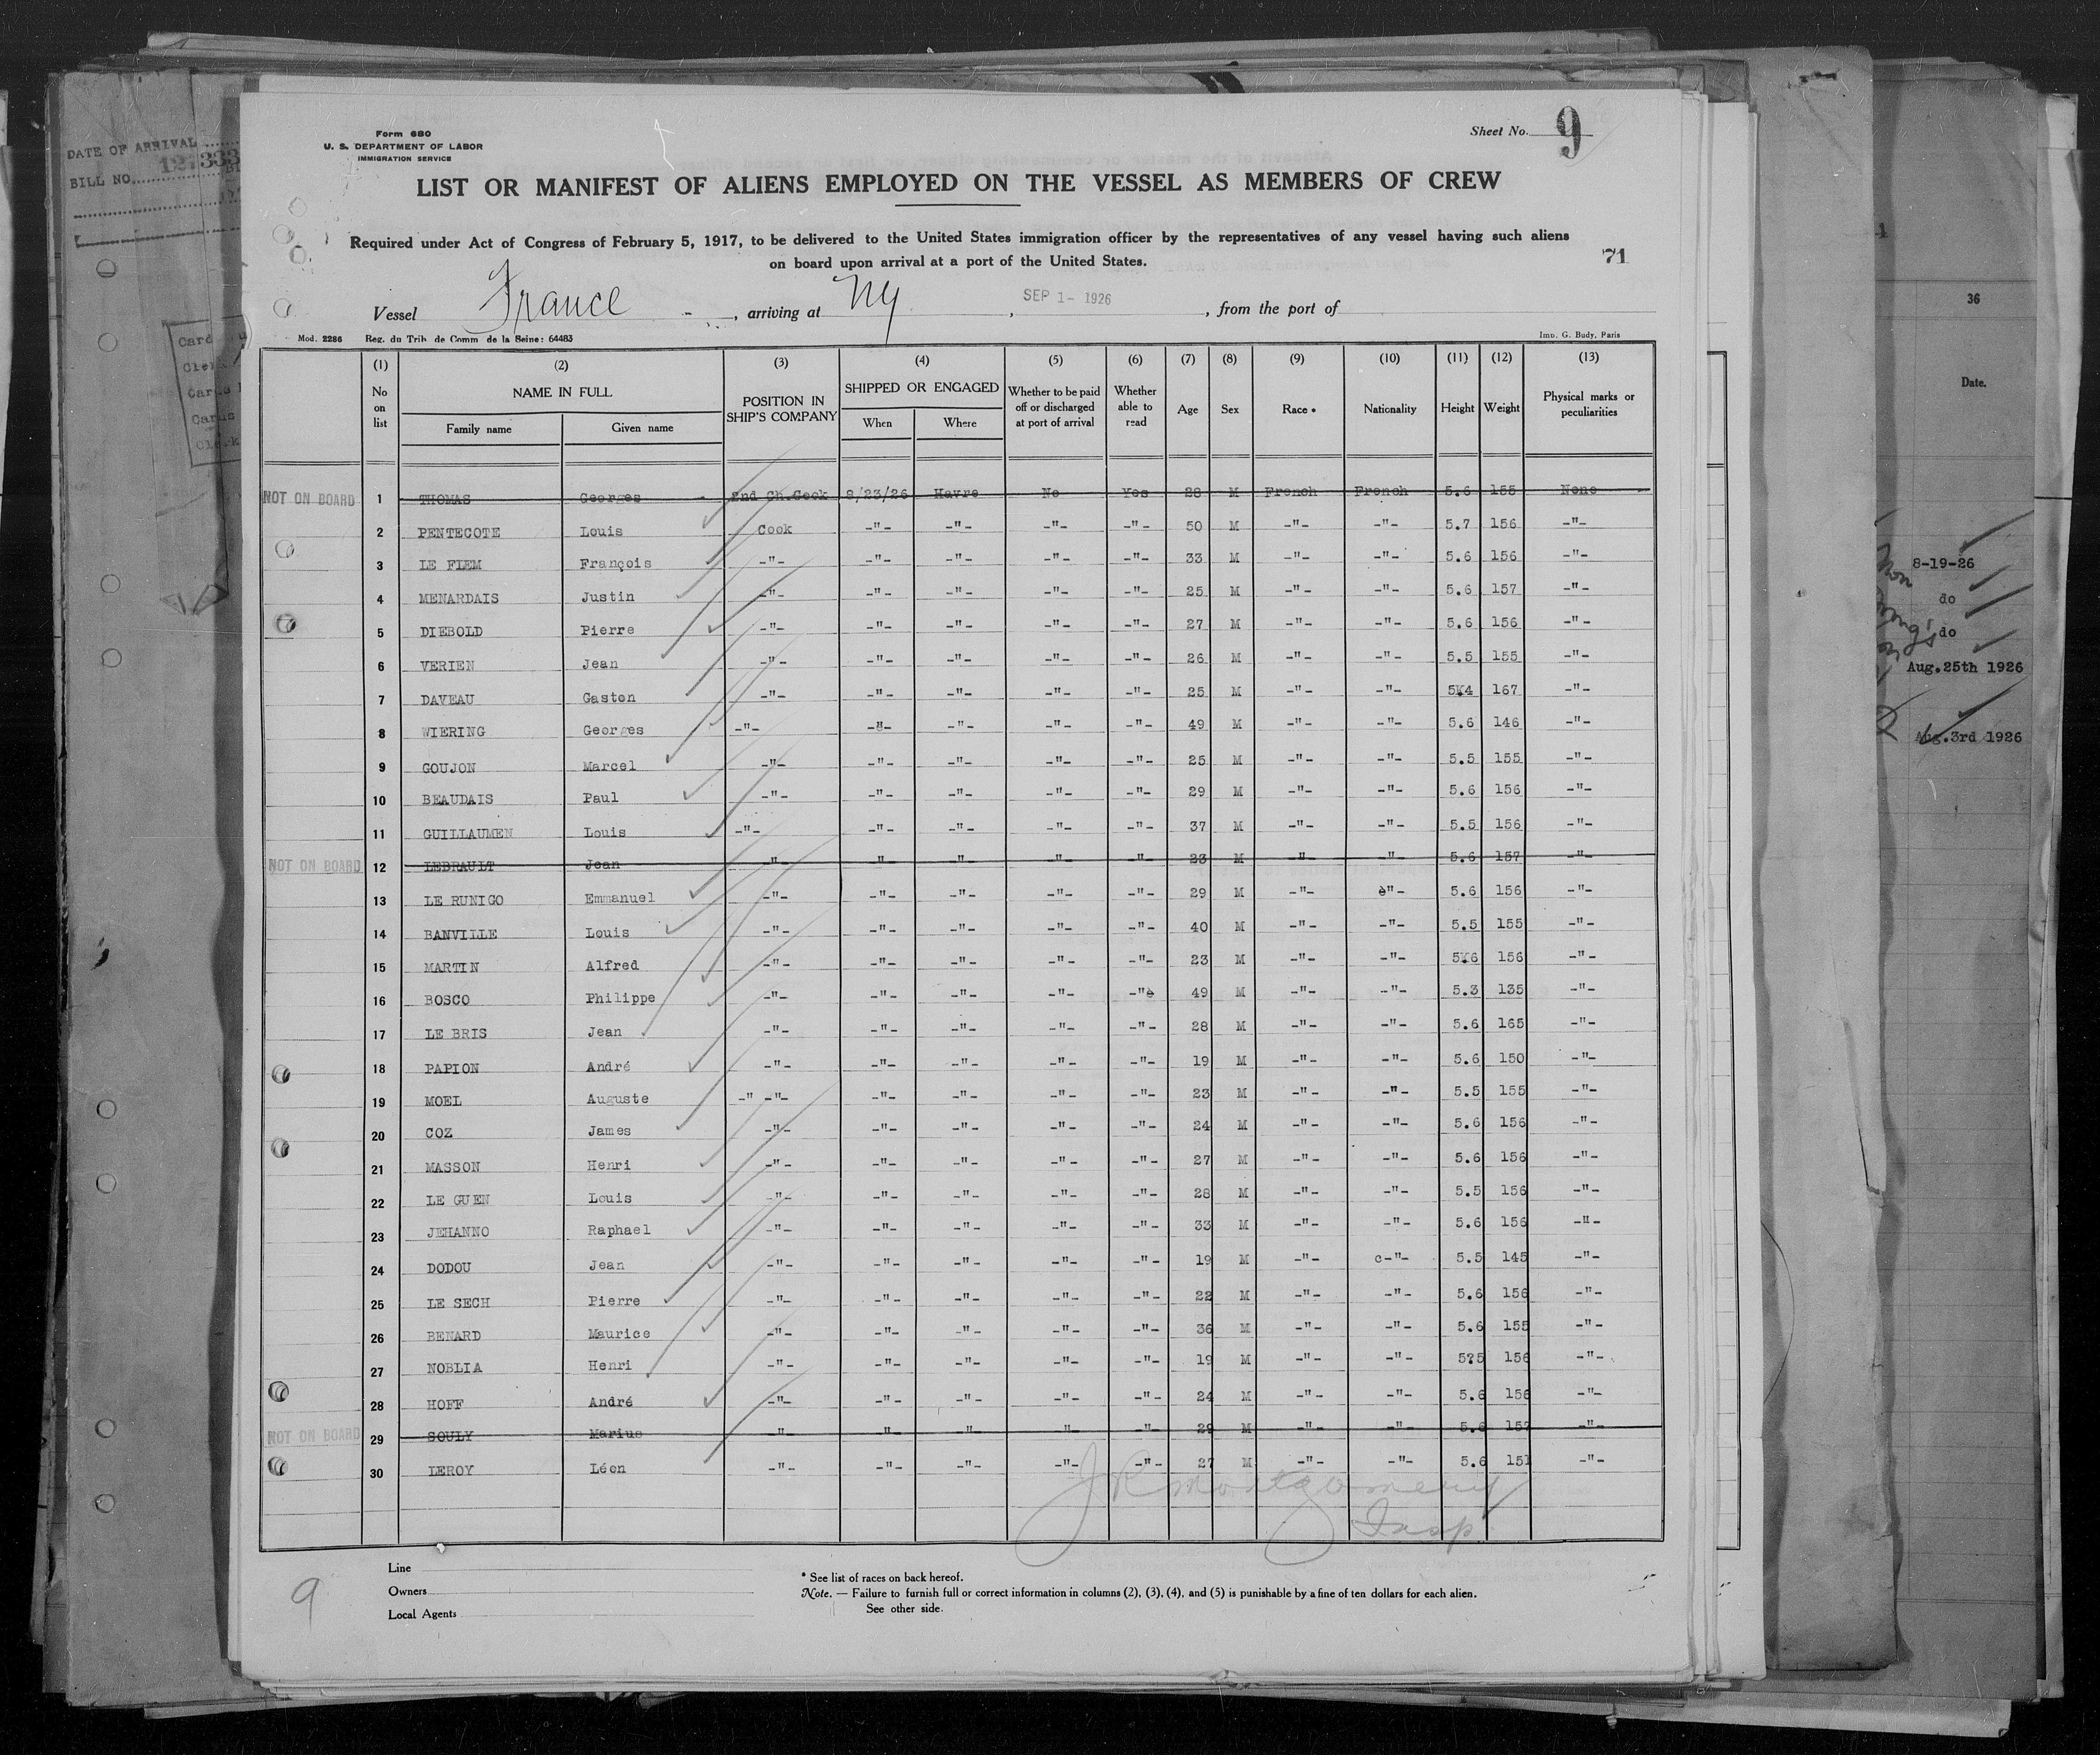 DATE OF ARRIVAL
BILL NO.
Form 680
U. S. DEPARTMENT OF LABOR
IMMIGRATION SERVICE
Sheet No. 9
LIST OR MANIFEST OF ALIENS EMPLOYED ON THE VESSEL AS MEMBERS OF CREW
Required under Act of Congress of February 5, 1917, to be delivered to the United States immigration officer by the representatives of any vessel having such aliens
on board upon arrival at a port of the United States.
71
Vessel France, arriving at NY, SEP 1- 1926, from the port of
Mod. 2286 Reg. du Trib de Comm de la Seine: 64483 Imp. G. Budy, Paris
(1) (2) (3) (4) (5) (6) (7) (8) (9) (10) (11) (12) (13)
No on list NAME IN FULL POSITION IN SHIP'S COMPANY SHIPPED OR ENGAGED Whether to be paid off or discharged at port of arrival Whether able to read Age Sex Race * Nationality Height Weight Physical marks or peculiarities
Family name Given name When Where
NOT ON BOARD 1 THOMAS Georges 2nd Ch.Cook 8/23/26 Havre No Yes 28 M French French 5.6 155 None
2 PENTECOTE Louis Cook -"- -"- -"- -"- 50 M -"- -"- 5.7 156 -"-
3 LE FLEM François -"- -"- -"- -"- -"- 33 M -"- -"- 5.6 156 -"-
4 MENARDAIS Justin -"- -"- -"- -"- -"- 25 M -"- -"- 5.6 157 -"-
5 DIEBOLD Pierre -"- -"- -"- -"- -"- 27 M -"- -"- 5.6 156 -"-
6 VERIEN Jean -"- -"- -"- -"- -"- 26 M -"- -"- 5.5 155 -"-
7 DAVEAU Gaston -"- -"- -"- -"- -"- 25 M -"- -"- 5¼4 167 -"-
8 WIERING Georges -"- -"- -"- -"- -"- 49 M -"- -"- 5.6 146 -"-
9 GOUJON Marcel -"- -"- -"- -"- -"- 25 M -"- -"- 5.5 155 -"-
10 BEAUDAIS Paul -"- -"- -"- -"- -"- 29 M -"- -"- 5.6 156 -"-
11 GUILLAUMEN Louis -"- -"- -"- -"- -"- 37 M -"- -"- 5.5 156 -"-
NOT ON BOARD 12 LEBRAULT Jean -"- -"- -"- -"- -"- 23 M -"- -"- 5.6 157 -"-
13 LE RUNIGO Emmanuel -"- -"- -"- -"- -"- 29 M -"- è"- 5.6 156 -"-
14 BANVILLE Louis -"- -"- -"- -"- -"- 40 M -"- -"- 5.5 155 -"-
15 MARTIN Alfred -"- -"- -"- -"- -"- 23 M -"- -"- 5¼6 156 -"-
16 BOSCO Philippe -"- -"- -"- -"- -"è 49 M -"- -"- 5.3 135 -"-
17 LE BRIS Jean -"- -"- -"- -"- -"- 28 M -"- -"- 5.6 165 -"-
18 PAPION André -"- -"- -"- -"- -"- 19 M -"- -"- 5.6 150 -"-
19 MOEL Auguste -" -"- -"- -"- -"- -"- 23 M -"- -"- 5.5 155 -"-
20 COZ James -"- -"- -"- -"- -"- 24 M -"- -"- 5.6 156 -"-
21 MASSON Henri -"- -"- -"- -"- -"- 27 M -"- -"- 5.6 156 -"-
22 LE GUEN Louis -"- -"- -"- -"- -"- 28 M -"- -"- 5.5 156 -"-
23 JEHANNO Raphael -"- -"- -"- -"- -"- 33 M -"- -"- 5.6 156 -"-
24 DODOU Jean -"- -"- -"- -"- -"- 19 M -"- c-"- 5.5 145 -"-
25 LE SECH Pierre -"- -"- -"- -"- -"- 22 M -"- -"- 5.6 156 -"-
26 BENARD Maurice -"- -"- -"- -"- -"- 36 M -"- -"- 5.6 155 -"-
27 NOBLIA Henri -"- -"- -"- -"- -"- 19 M -"- -"- 5?5 156 -"-
28 HOFF André -"- -"- -"- -"- -"- 24 M -"- -"- 5.6 156 -"-
NOT ON BOARD 29 SOULY Marius -"- -"- -"- -"- -"- 29 M -"- -"- 5.6 157 -"-
30 LEROY Léon -"- -"- -"- -"- -"- 27 M -"- -"- 5.6 151 -"-
J R Montgomery
Insp
Line
Owners
Local Agents
* See list of races on back hereof.
Note. — Failure to furnish full or correct information in columns (2), (3), (4), and (5) is punishable by a fine of ten dollars for each alien.
See other side.
9
36
Date.
8-19-26
do
do
Aug.25th 1926
Aug.3rd 1926